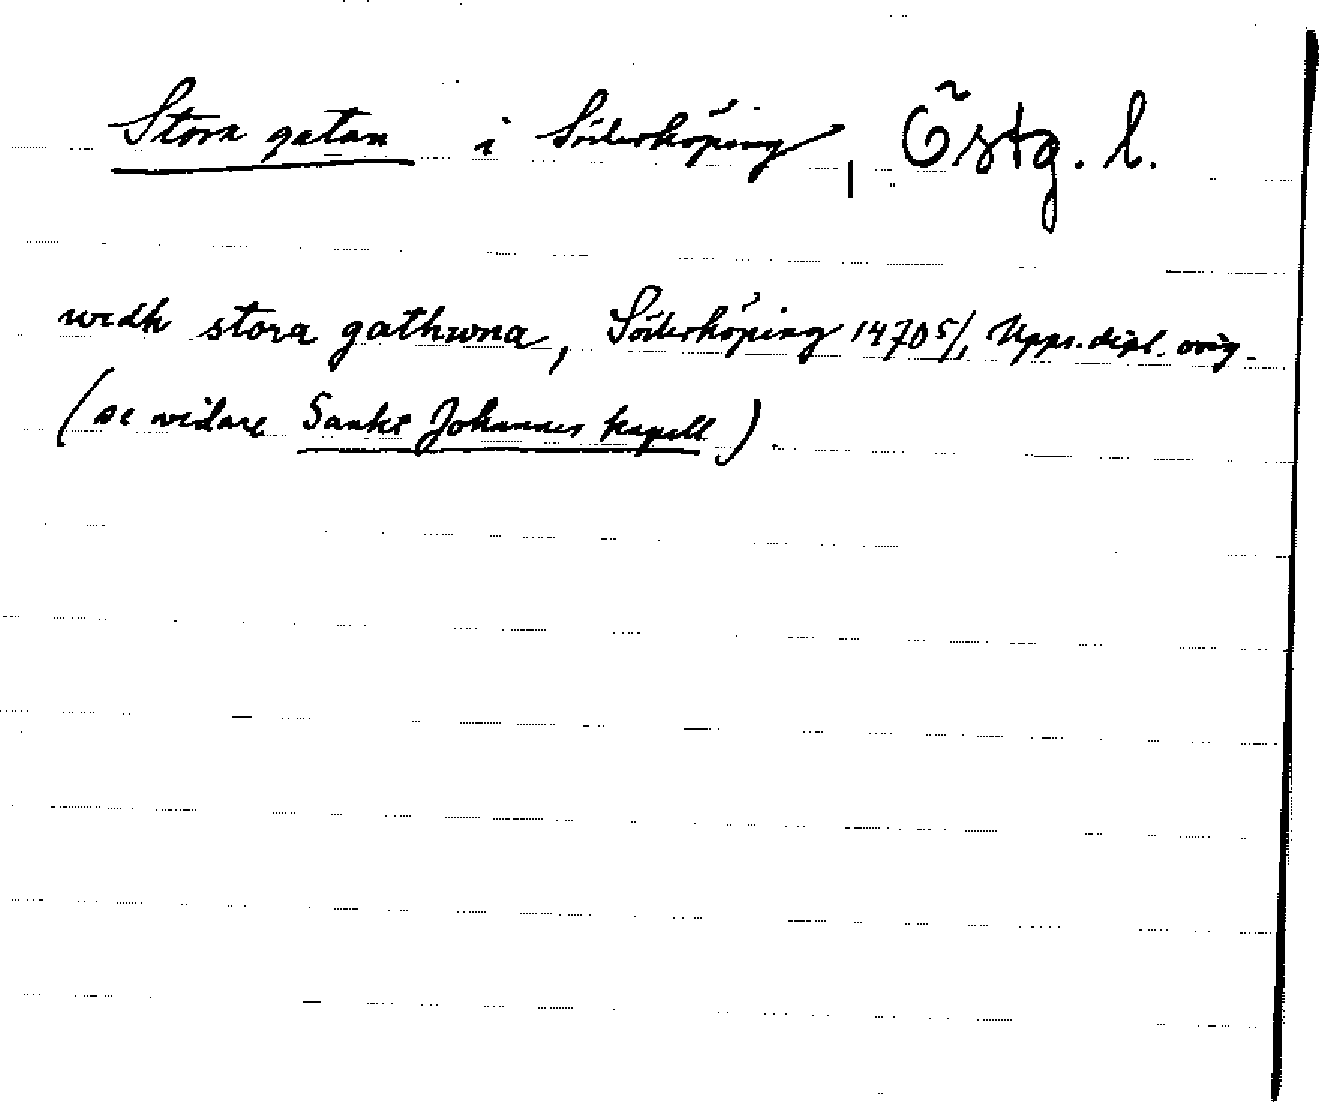 Stora gatan i Söderköping, Östg. l.
widh stora gathwna, Söderköping 1470 5/, Upps. dipl. orig.
(se vidare Sankt Johannes kapell).